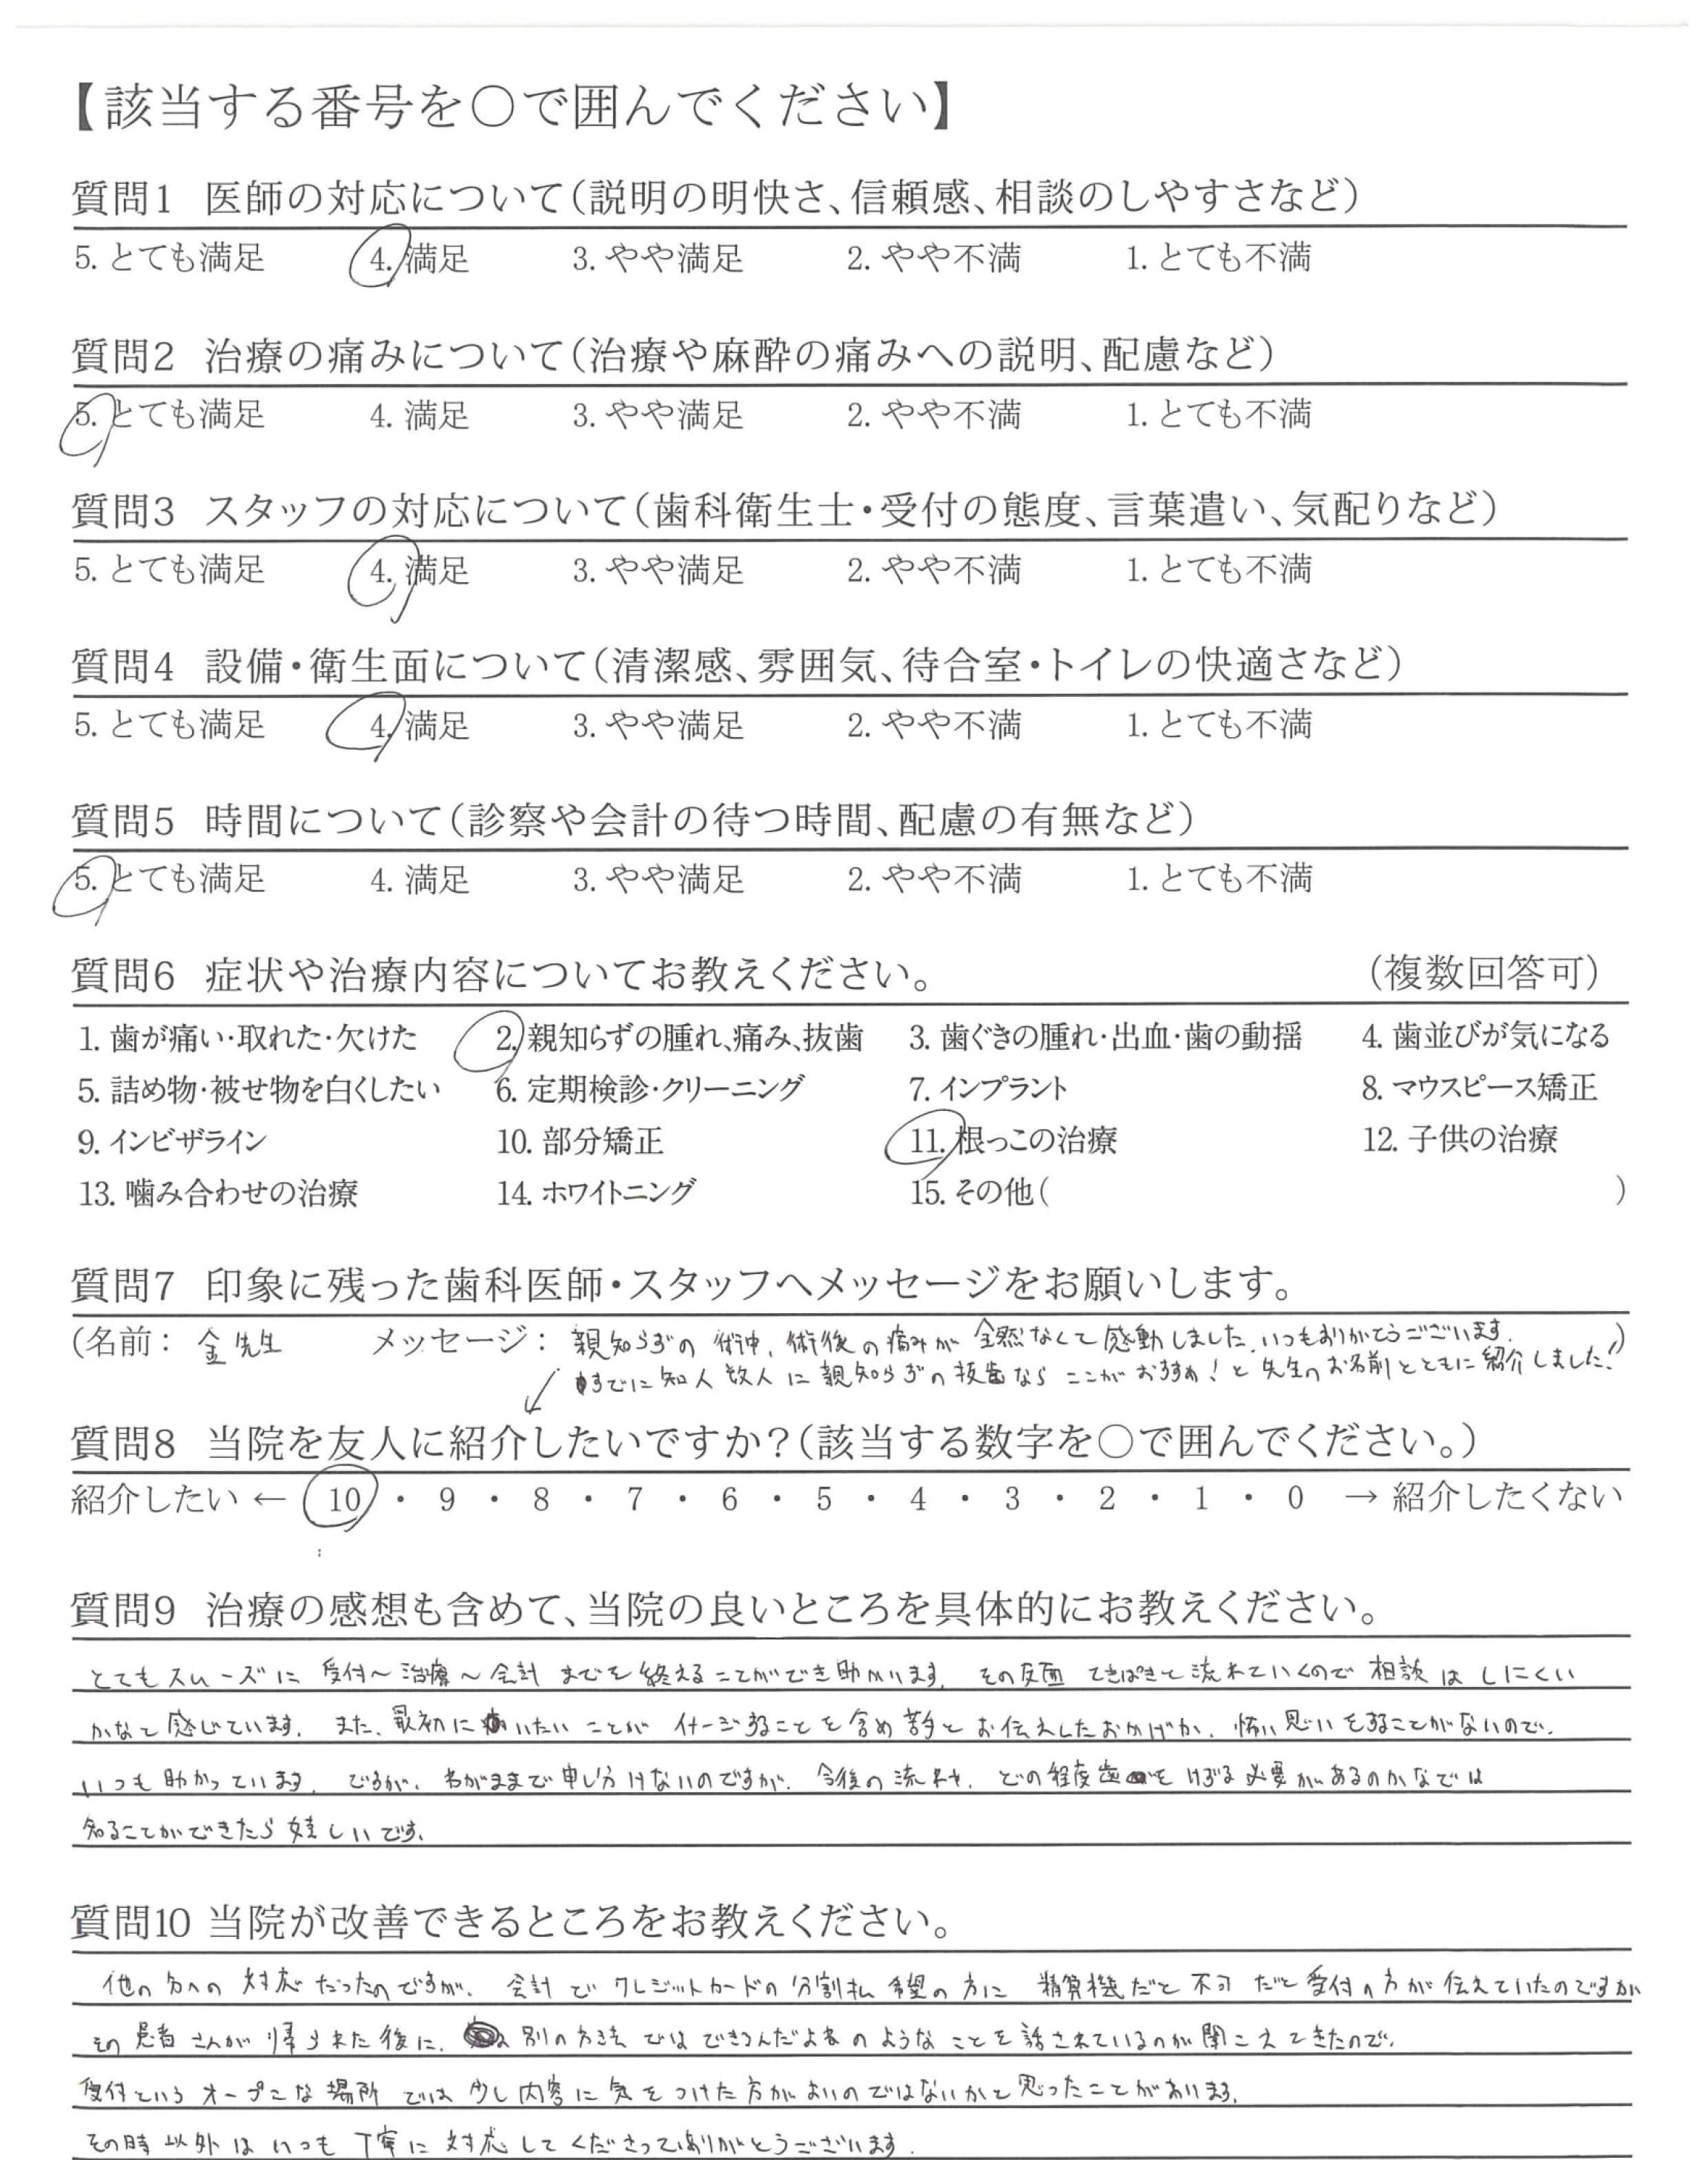 【該当する番号を○で囲んでください】
質問1 医師の対応について（説明の明快さ、信頼感、相談のしやすさなど）
5. とても満足 4. 満足 3. やや満足 2. やや不満 1. とても不満
質問2 治療の痛みについて（治療や麻酔の痛みへの説明、配慮など）
5. とても満足 4. 満足 3. やや満足 2. やや不満 1. とても不満
質問3 スタッフの対応について（歯科衛生士・受付の態度、言葉遣い、気配りなど）
5. とても満足 4. 満足 3. やや満足 2. やや不満 1. とても不満
質問4 設備・衛生面について（清潔感、雰囲気、待合室・トイレの快適さなど）
5. とても満足 4. 満足 3. やや満足 2. やや不満 1. とても不満
質問5 時間について（診察や会計の待つ時間、配慮の有無など）
5. とても満足 4. 満足 3. やや満足 2. やや不満 1. とても不満
質問6 症状や治療内容についてお教えください。 （複数回答可）
1. 歯が痛い・取れた・欠けた 2. 親知らずの腫れ、痛み、抜歯 3. 歯ぐきの腫れ・出血・歯の動揺 4. 歯並びが気になる
5. 詰め物・被せ物を白くしたい 6. 定期検診・クリーニング 7. インプラント 8. マウスピース矯正
9. インビザライン 10. 部分矯正 11. 根っこの治療 12. 子供の治療
13. 噛み合わせの治療 14. ホワイトニング 15. その他（ ）
質問7 印象に残った歯科医師・スタッフへメッセージをお願いします。
（名前： 金先生 メッセージ： 親知らずの術中、術後の痛みが全然なくて感動しました、いつもありがとうございます。 ）
すでに知人数人に親知らずの抜歯ならここがおすすめ！と先生のお名前とともに紹介しました！
質問8 当院を友人に紹介したいですか？（該当する数字を○で囲んでください。）
紹介したい ← 10 ・ 9 ・ 8 ・ 7 ・ 6 ・ 5 ・ 4 ・ 3 ・ 2 ・ 1 ・ 0 → 紹介したくない
質問9 治療の感想も含めて、当院の良いところを具体的にお教えください。
とてもスムーズに 受付〜治療〜会計 までを終えることができ助かります。その反面 てきぱきと流れていくので 相談はしにくい
かなと感じています。また、最初に いたいことが イメージすることを含め苦手とお伝えしたおかげか、怖い思いをすることがないので、
いつも助かっています。ですが、わがままで申し分けないのですが、今後の流れや、どの程度歯をけずる必要があるのかなどは
知ることができたら嬉しいです。
質問10 当院が改善できるところをお教えください。
他の方への対応だったのですが、会計でクレジットカードの分割払希望の方に 精算機だと不可だと受付の方が伝えていたのですが
その患者さんが帰られた後に、別の方法ではできるんだよねのようなことを話されているのが聞こえてきたので、
受付というオープンな場所では少し内容に気をつけた方がよいのではないかと思ったことがあります。
その時以外はいつも丁寧に対応してくださってありがとうございます。